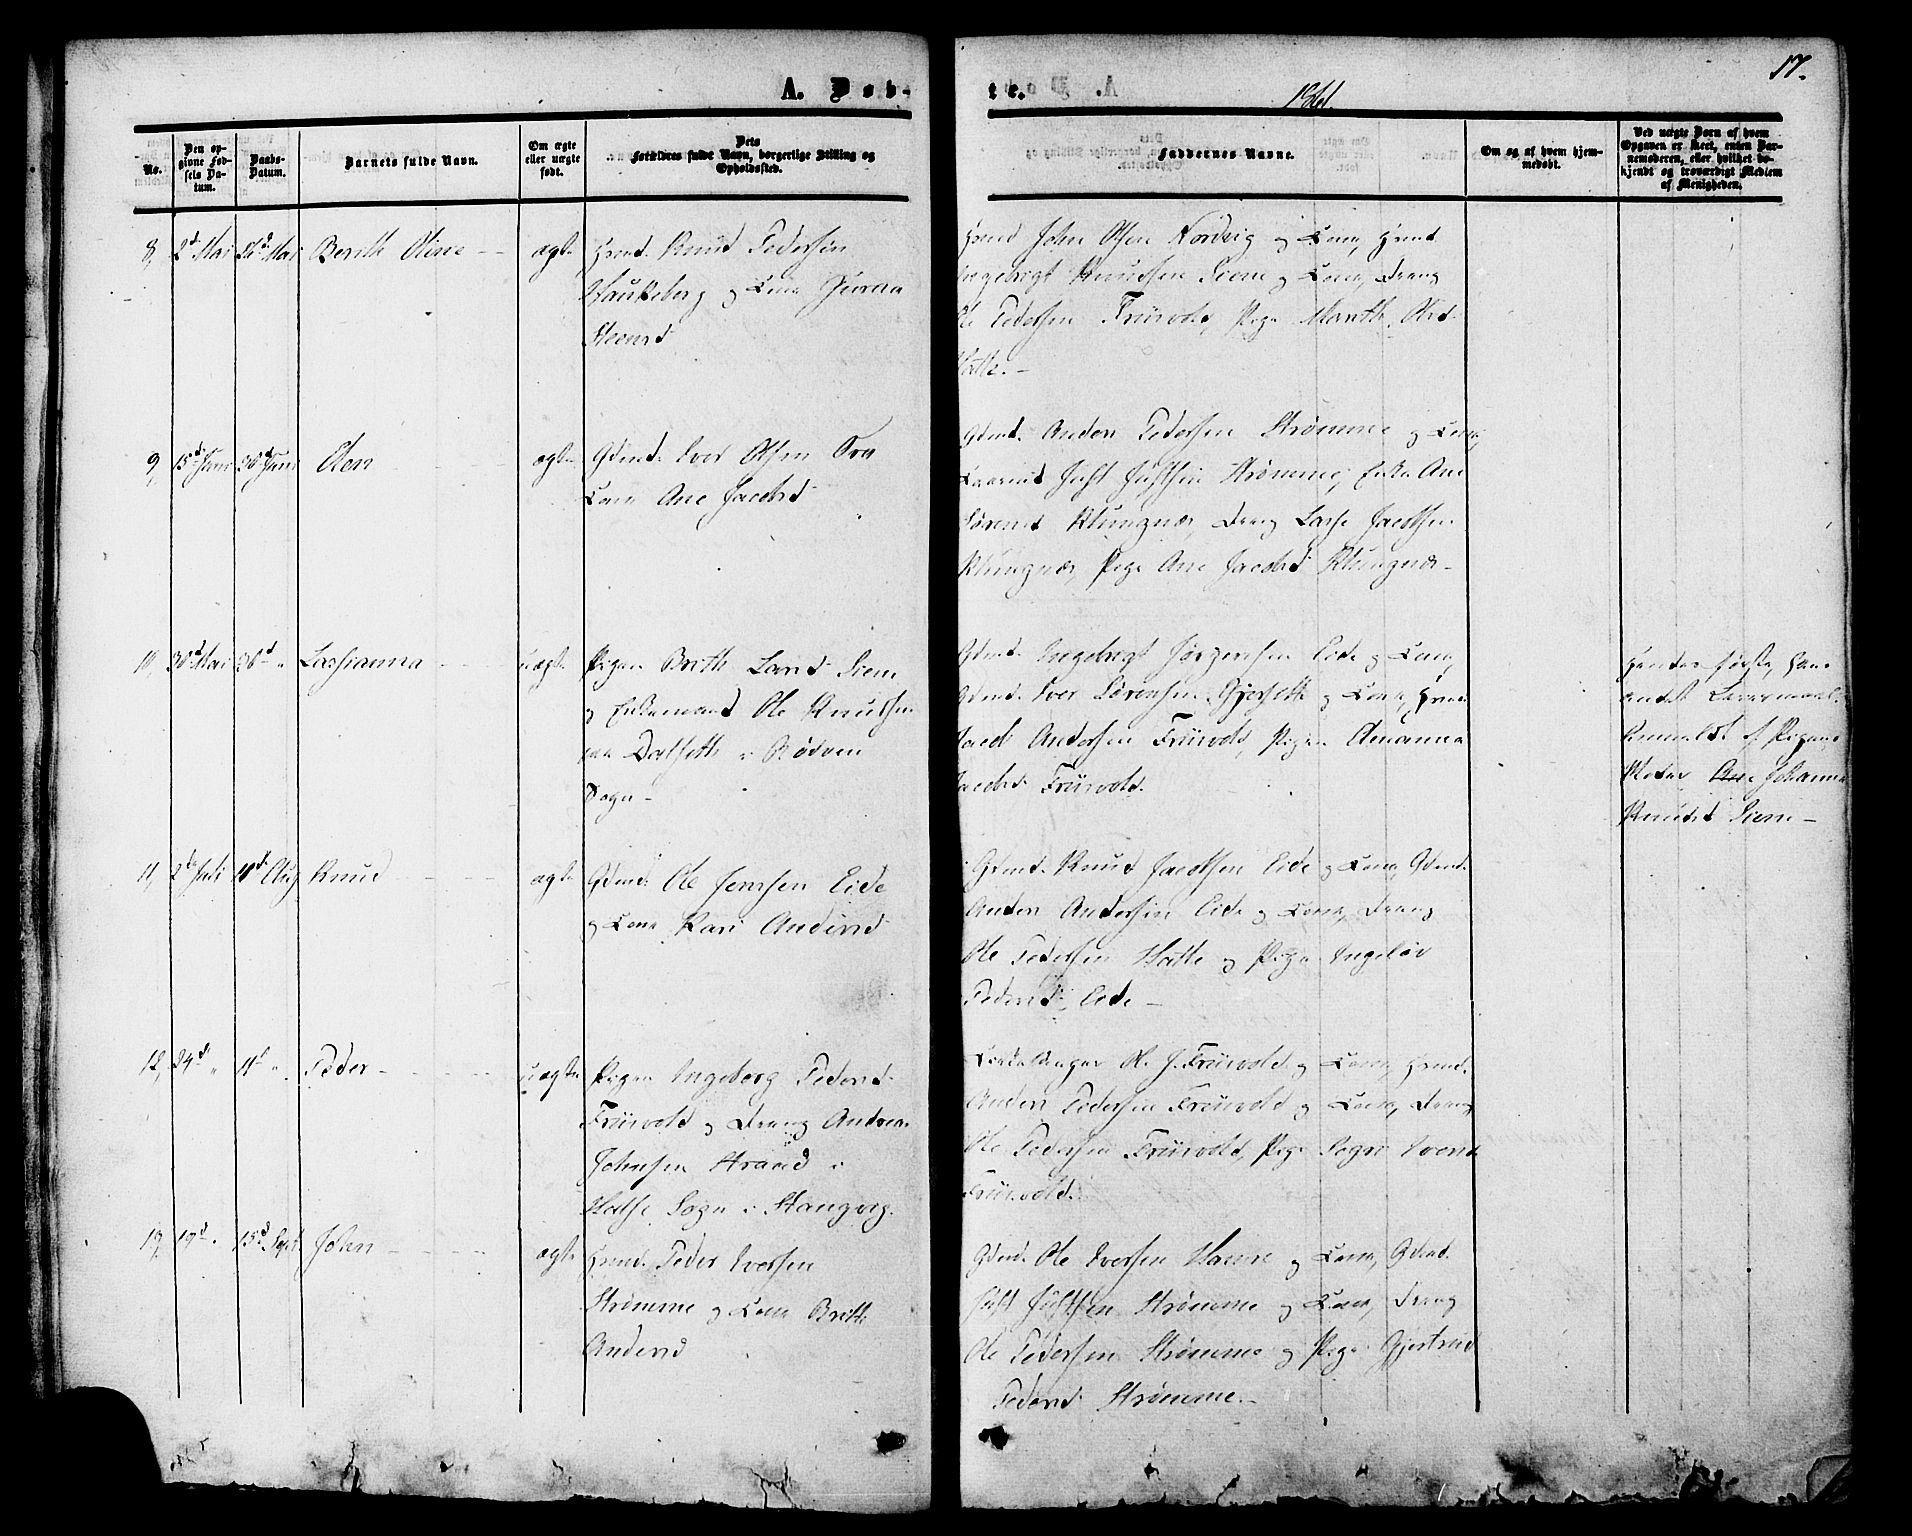 A. Døb-
te.
1861.
17.
No.
Den op-
givne Fød-
sels Da-
tum.
Daabs-
Datum.
Barnets fulde Navn.
Om ægte
eller uægte
født.
Dets
Forældres fulde Navn, borgerlige Stilling og
Opholdssted.
Faddernes Navne.
Om og af hvem hjem-
medøbt.
Ved uægte Børn af hvem
Opgaven er skeet, enten Bar-
nemoderen, eller hvilket be-
kjendt og troværdigt Medlem
af Menigheden.
8, 2d Mai 26d Mai Berith Oline - - ægte
Hmd. Knud Pedersen
Haukeberg og Kone
Steensd
Hmd John Olsen Nordvig og Kone, Hmd
Ingebrigt Knudsen Siem og Kone, Dreng
Ole Pedersen Friisvold, Pige Marith Olsd.
Hatle. -
9, 15d Juni 30d Juni Elen - - ægte
Gdmd. Iver Olsen
Kone Ane Jacobsd
Gdmd. Anders Pedersen Strømme og Kone,
Just Justsen Strømme, Enke Ane
Sørensd Klungnæs, Dreng Lasse Jacobsen
Klungnæs, Pige Ane Jacobsd Klungnæs -
10, 30d Mai 30d " Lassianna - - uægte
Pigen Brith Larsd Siem
og Enkemand Ole Knudsen
paa Dalseth i Rødven
Sogn -
Gdmd. Ingebrigt Jørgensen Eide og Kone,
Gdmd. Iver Sørensen Gjerseth og Kone, Hmd
Jacob Andersen Friisvold, Pigen Amanna
Jacobsd Friisvold.
Hendes første, hans
andet Leiermaal.
Anmeldt af Pigens
Moder Ane Johanna
Knudsd Siem -
11, 2d Juli 11d Aug Knud - - ægte
Gdmd. Ole Jenssen Eide
og Kone Kari Andersd
Gdmd. Knud Jacobsen Eide og Kone, Gdmd.
Anders Andersen Eide og Kone, Dreng
Ole Pedersen Hatle og Pige Ingeløv
Pedersd Eide -
12, 24d " 11d " Peder - - uægte
Pigen Ingeborg Pedersd
Friisvold og Dreng Andreas
Johnsen Strand i
Halse Sogn i Stangvig.
Ole J. Friisvold og Kone, Hmd.
Anders Pedersen Friisvold og Kone, Dreng
Ole Pedersen Friisvold, Pige Segri Iversd
Friisvold.
19d " 15d Sept John - - ægte
Hmd. Peder Iversen
Strømme og Kone Brith
Andersd
Gdmd. Ole Iversen Hamre og Kone, Gdmd.
Just Justsen Strømme og Kone, Dreng
Ole Pedersen Strømme og Pige Gjertrud
Pedersd Strømme. -